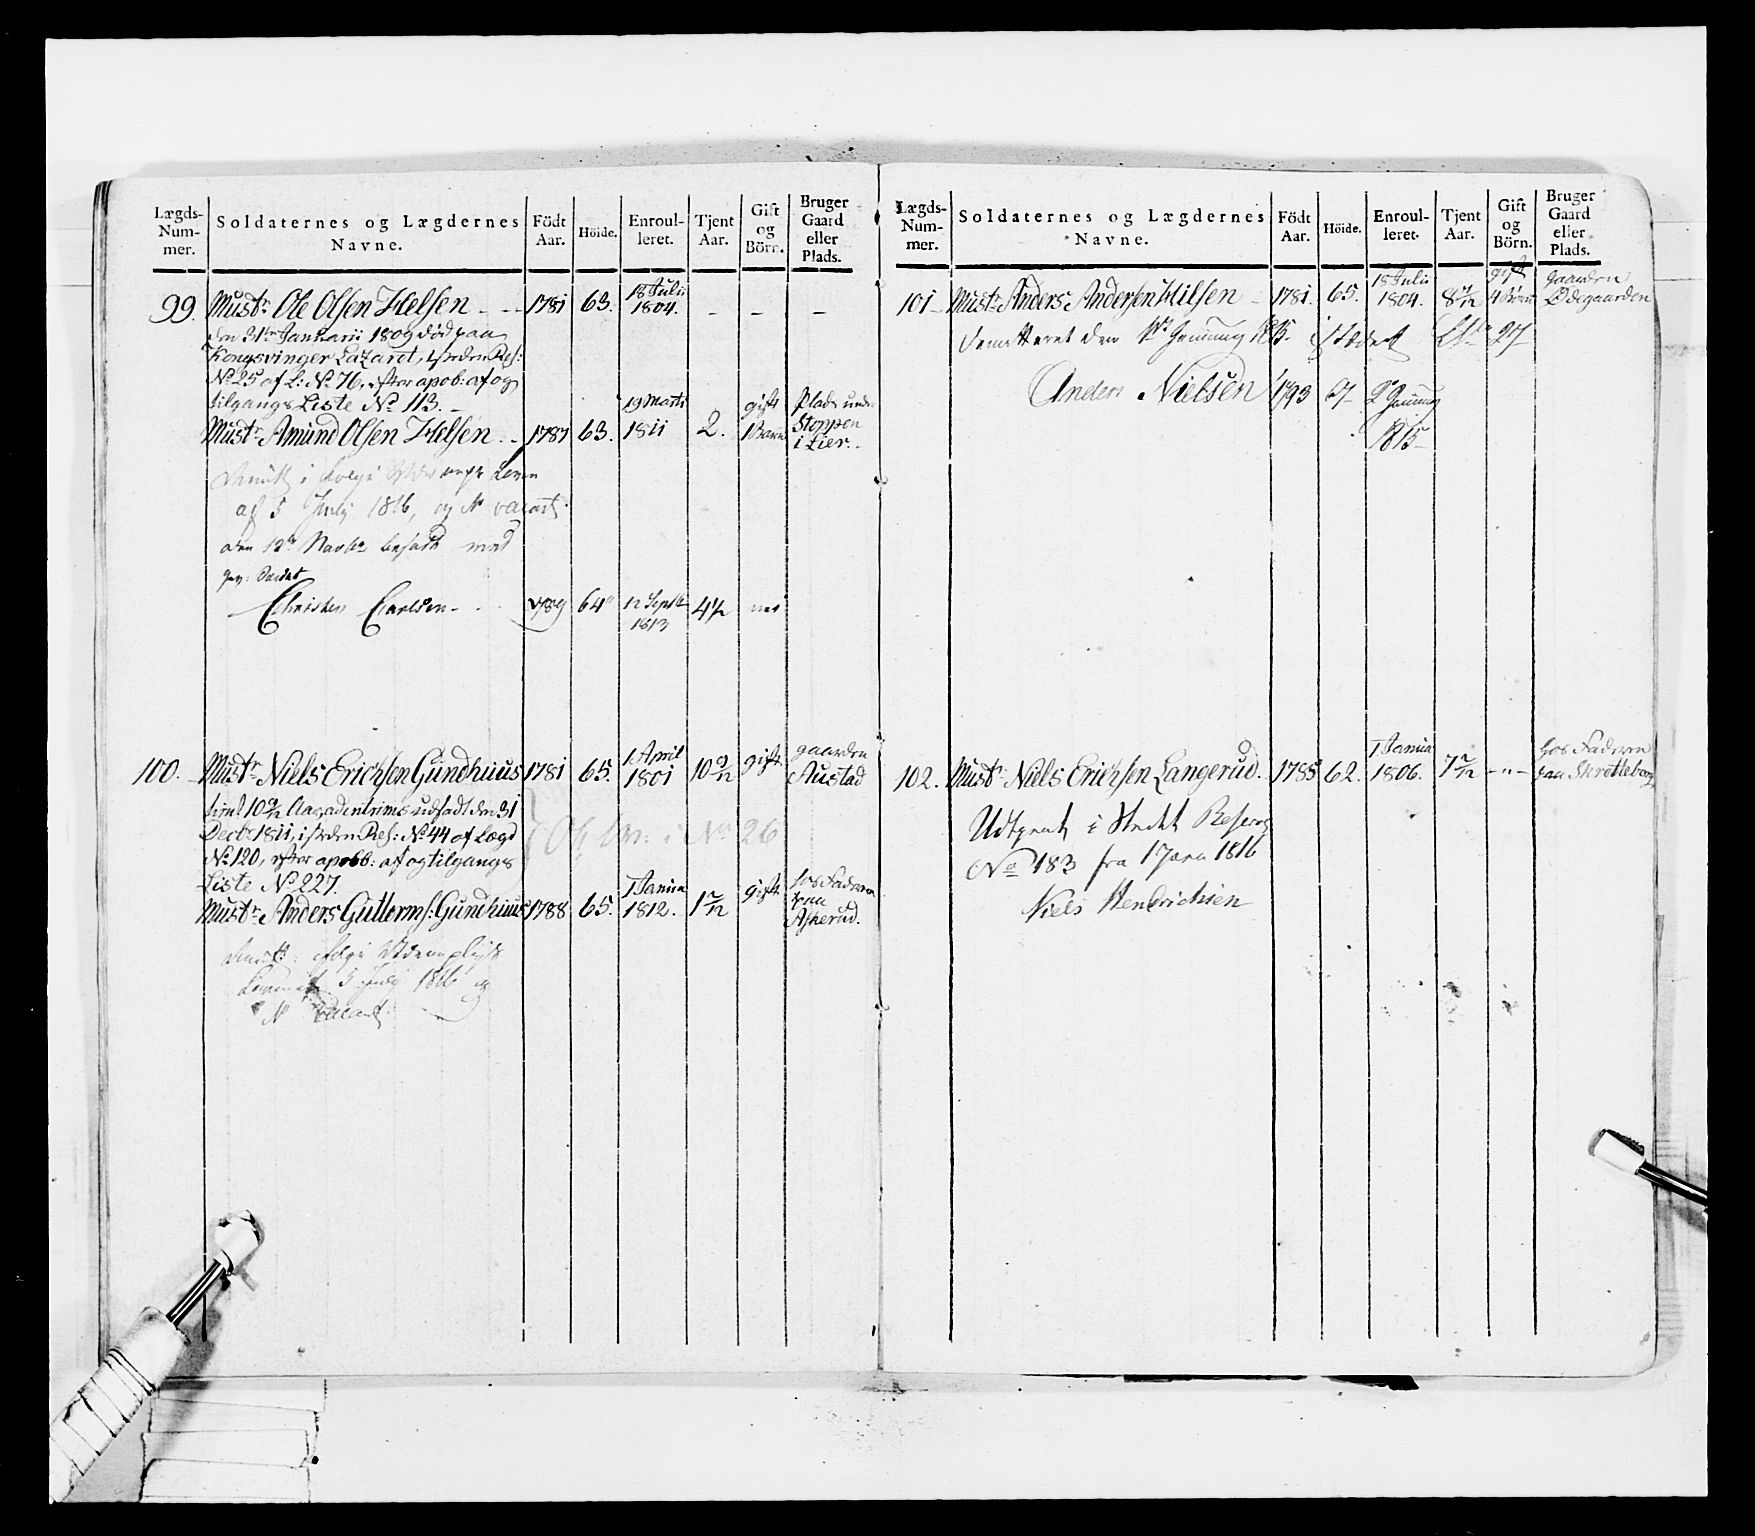 Lægds-
Num-
mer.
Soldaternes og Lægdernes
Navne.
Födt
Aar.
Höide.
Enroul-
leret.
Tjent
Aar.
Gift
og
Börn.
Bruger
Gaard
eller
Plads.
99. Must: Ole Olsen Helsen - - 1781 63. 18 Julii 1804. - - -
den 31te Januarii 1809 död paa
Kongsvinger Lazaret, isteden Res:
No 25 af L: No 76, efter apob: af og
tilgangs Liste No 113. -
Must: Amund Olsen Helsen - 1787 63. 19 Marts 1811 2. gift 1 Barn Plads und: Stoppen i Lier.
af 5 July 1816, og No vacant.
den 12te Novbr besadt med
Christen Carlsen - 1789 64" 12 Septb 1813 4½ nei
100. Must: Niels Erichsen Gundhuus 1781 65. 1 April 1801 10 9/12 gift gaarden Austad
tient 10 9/12 Aar, udsadt den 31
Decbr 1811, isteden Res: No 44 af Lægd
No 120, efter apobb: af og tilgangs
Liste No 227.
No 26
Must: Anders Gutterms: Gundhuus 1788 65. 1 Janua 1812. 1 7/12 gift hos Faderen paa Askerud.
5 July 1816 og
No vacant
Lægds-
Num-
mer.
Soldaternes og Lægdernes
Navne.
Födt
Aar.
Höide.
Enroul-
leret.
Tjent
Aar.
Gift
og
Börn.
Bruger
Gaard
eller
Plads.
101 - Must: Anders Andersen Hilsen - 1781. 65. 18 Julii 1804. gift 4 Börn gaarden Ödegaarden
den 1815. istædet 27
Anders Nielsen 1793 1815
102. Must: Niels Erichsen Langerud. 1785 62. 1 Janua 1806. 7 7/12 - " - hos Faderen paa Skretteberg
i Stedet Reserv
No 183 fra 1 Janu 1816
Niels Hendrichsen